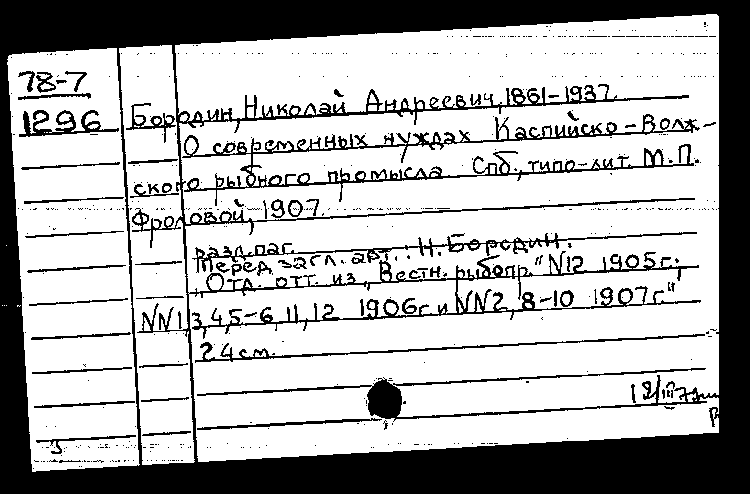 78-7
1296
Бородин, Николай Андреевич, 1861-1937.
О современных нуждах Каспийско-Волж-
ского рыбного промысла. Спб., типо-лит. М.П.
Фроловой, 1907.
разл. паг.
Перед загл. авт.: Н. Бородин.
"Отд. отт. из "Вестн. рыбопр." N12 1905г.;
NN1,3,4,5-6,11,12 1906г. и NN2, 8-10 1907г."
24см.